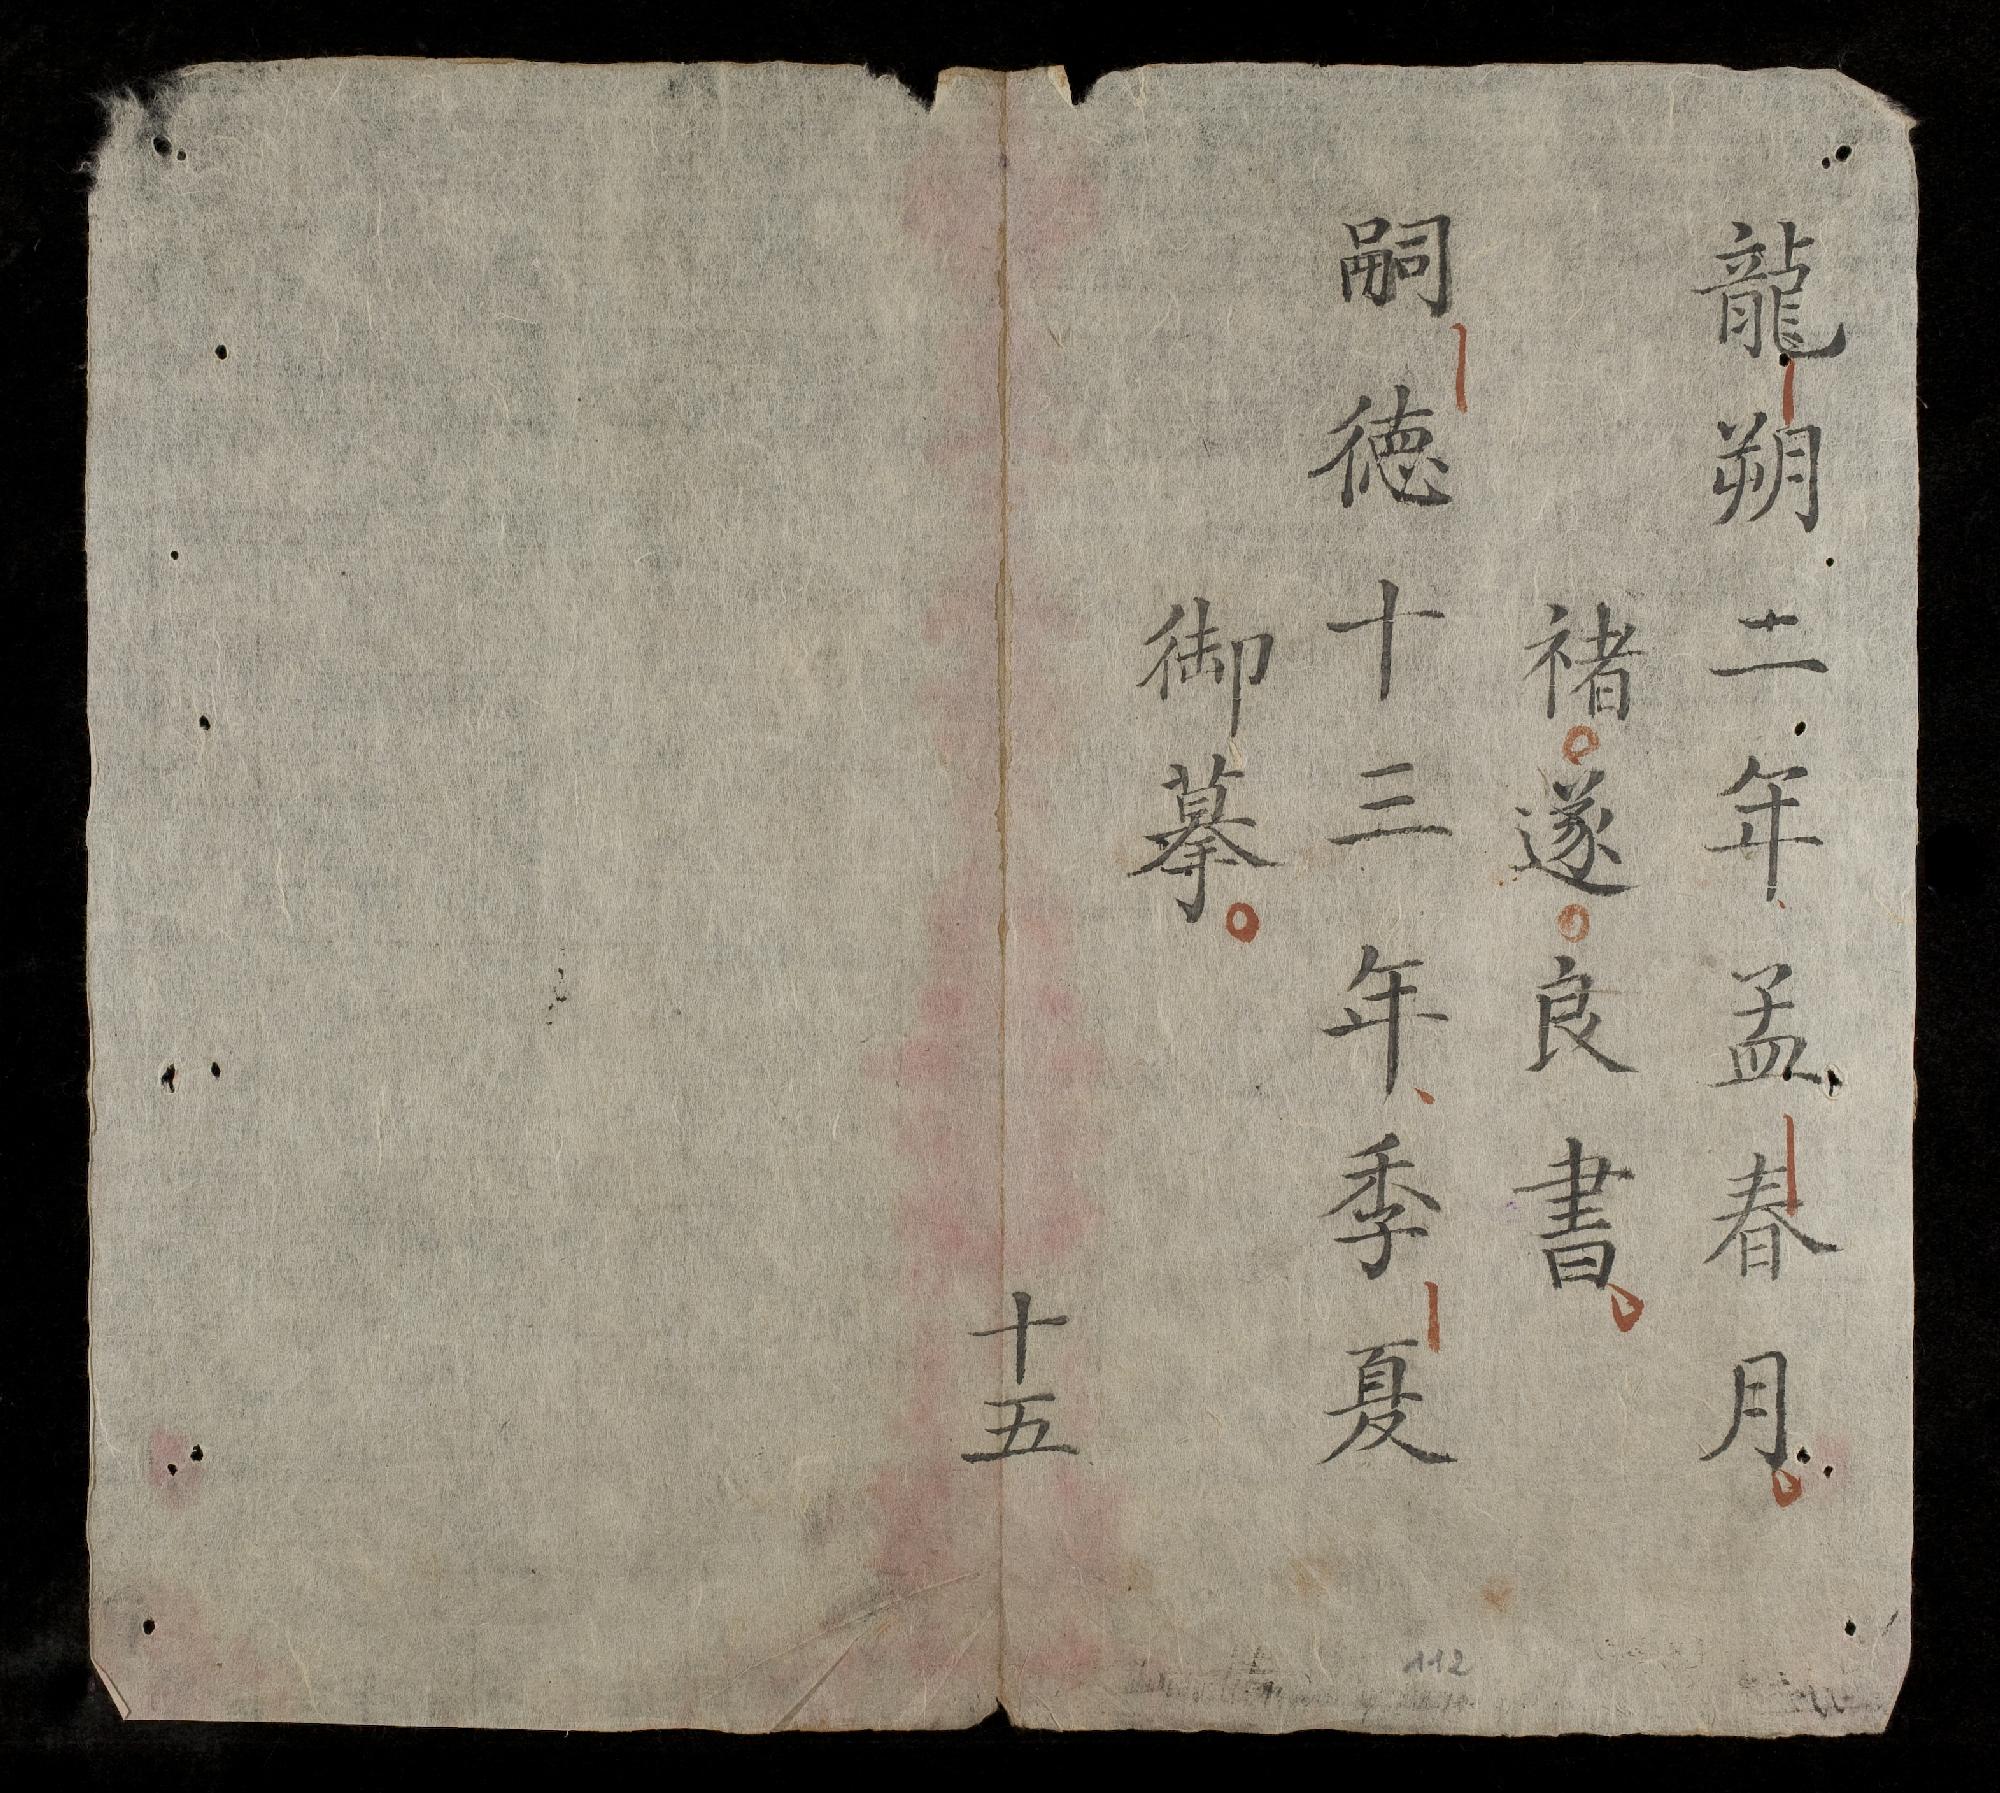 龍朔二年孟春月
禇遂良書
嗣德十三年季夏
御摹
十五
112